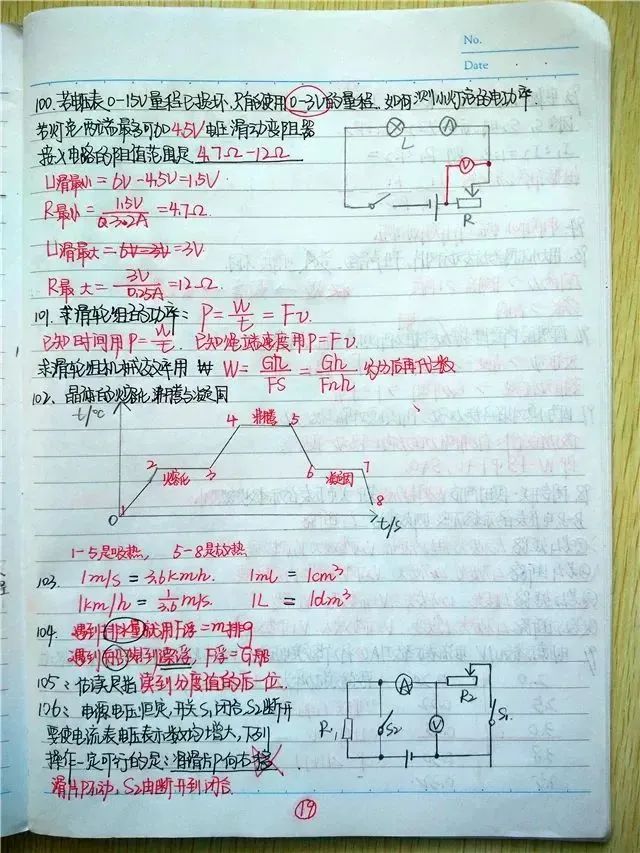 No.
Date
100. 若电压表0-15V量程已损坏.只能使用0-3V的量程.如何测小灯泡的电功率.
若灯泡两端最多可加4.5V电压滑动变阻器
接入电路的阻值范围是 4.7Ω-12Ω
L
A
V
R
U滑最小=6V-4.5V=1.5V
R最小=1.5V/0.32A=4.7Ω.
U滑最大=6V-3V=3V
R最大=3V/0.25A=12Ω.
101. 求滑轮组的功率: P=W/t=Fv.
已知时间用P=W/t. 已知绳端速度用P=Fv
求滑轮组机械效率用 W=Gh/FS=Gh/Fnh 约分后再代数
102. 晶体的熔化沸腾与凝固
t/℃
4 沸腾 5
2 熔化 3
6 凝固 7
1
8
0
t/s
1-5是吸热, 5-8是放热
103. 1m/s=3.6km/h. 1mL=1cm³
1km/h=1/3.6 m/s. 1L=1dm³
104. 遇到排水量就用F浮=m排g
遇到船想到漂浮, F浮=G船
105: 估读是指读到分度值的后一位.
106: 电源电压恒定,开关S₁闭合S₂断开
要使电流表电压表示数均增大,下列
操作一定可行的是:滑片P向右移
滑片P不动, S₂由断开到闭合
A
R₂
R₁
S₂
V
S₁
19